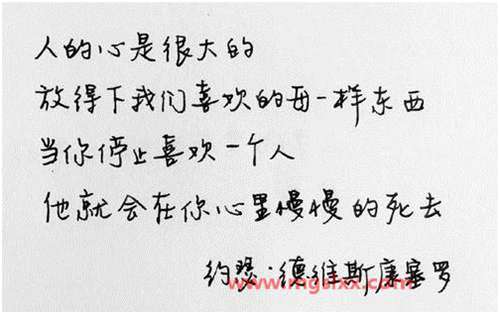 人的心是很大的
放得下我们喜欢的每一样东西
当你停止喜欢一个人
他就会在你心里慢慢的死去
约瑟·德维斯康塞罗
www.mgslxx.com